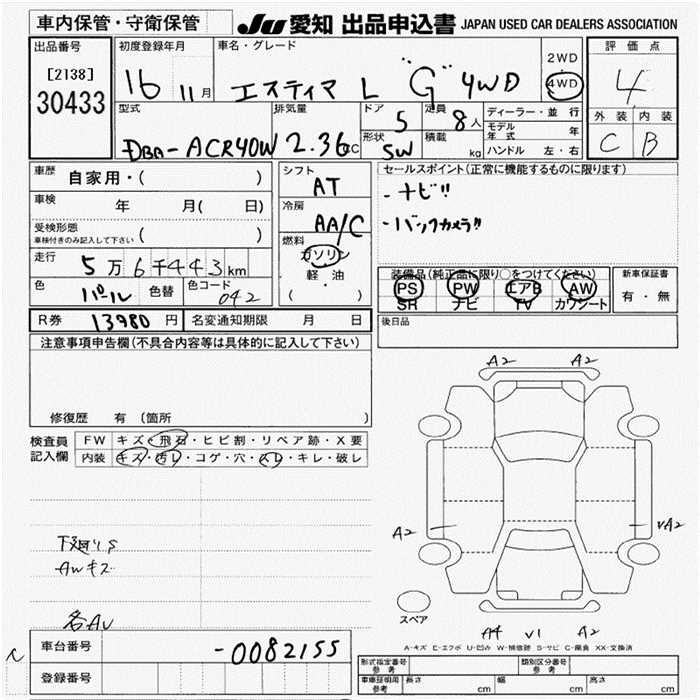 車内保管・守衛保管
JU 愛知 出品申込書 JAPAN USED CAR DEALERS ASSOCIATION
出品番号
[2138]
30433
初度登録年月
16 11月
車名・グレード
エスティマ L "G" 4WD
2WD
4WD
評価点
4
外装 内装
C B
型式
DBA-ACR40W
排気量
2.36cc
ドア
5
定員
8人
形状
SW
積載
kg
ディーラー・並行
モデル年式 年
ハンドル 左・右
車歴 自家用・( )
車検 年 月( 日)
受検形態
車検付きのみ記入して下さい ( )
走行 5万6千443km
色 パール 色替 色コード 042
シフト
AT
冷房
AA/C
燃料
ガソリン
軽油
( ・ )
セールスポイント(正常に機能するものに限ります)
・ナビ!!
・バックカメラ!!
装備品(純正品に限り○をつけてください)
PS PW エアB AW
SR ナビ TV カワシート
新車保証書
有・無
R券 13980円 名変通知期限 月 日
後日品
注意事項申告欄(不具合内容等は具体的に記入して下さい)
修復歴 有 (箇所 )
検査員
記入欄
FW キズ・飛石・ヒビ割・リペア跡・X要
内装 キズ・汚レ・コゲ・穴・スレ・キレ・破レ
A2 A2
A2 VA2
下廻りS
AWキズ
各AU
スペア
A4 V1 A2
A-キズ E-エクボ U-凹み W-補修跡 S-サビ C-腐食 XX-交換済
車台番号 -0082155
登録番号
形式指定番号
参考
類別区分番号
参考
車庫証明用
参考
長さ cm 幅 cm 高さ cm